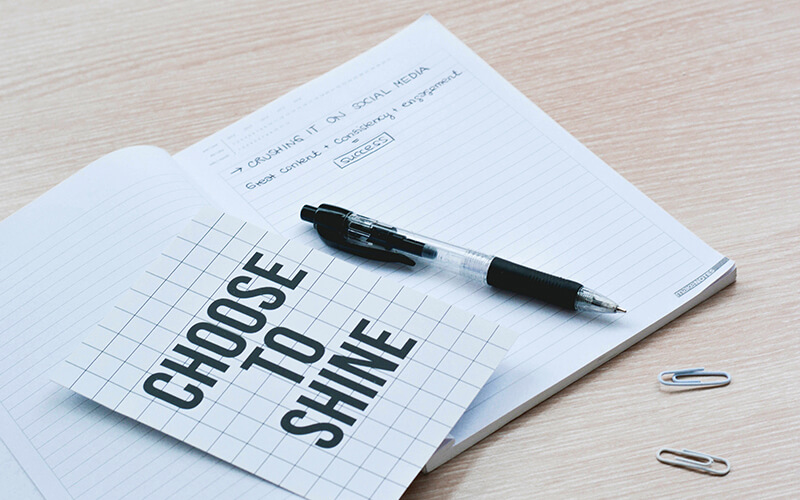 → CRUSHING IT ON SOCIAL MEDIA
Great content + consistency + engagement
=
success
CHOOSE
TO
SHINE